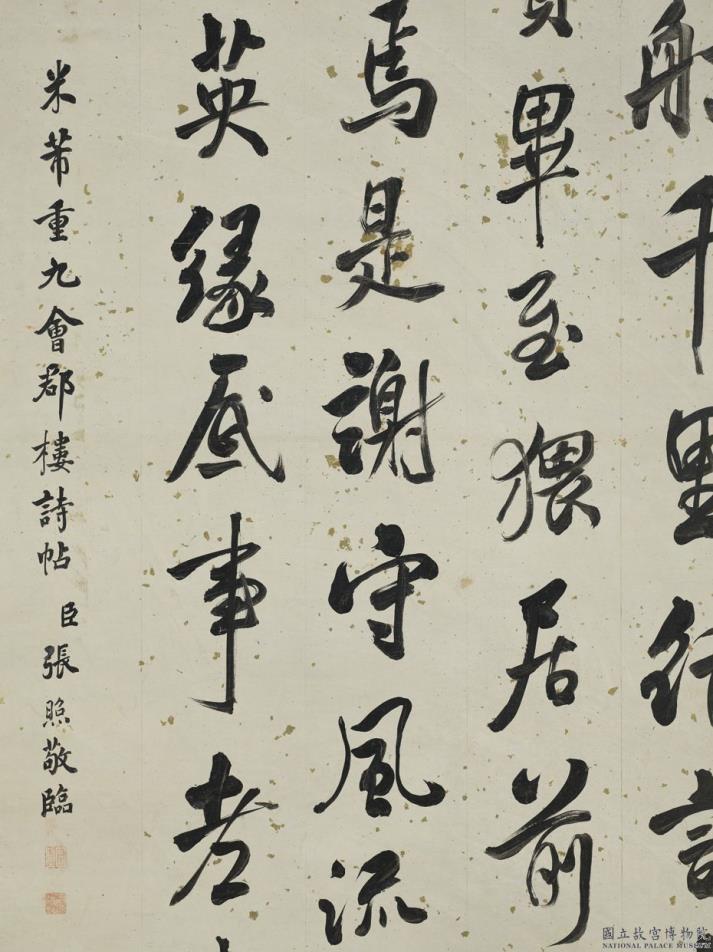 船千里結言
賢畢至猥居前
焉是謝守風流
英緣底事老
米芾重九會郡樓詩帖 臣張照敬臨
國立故宮博物院
NATIONAL PALACE MUSEUM